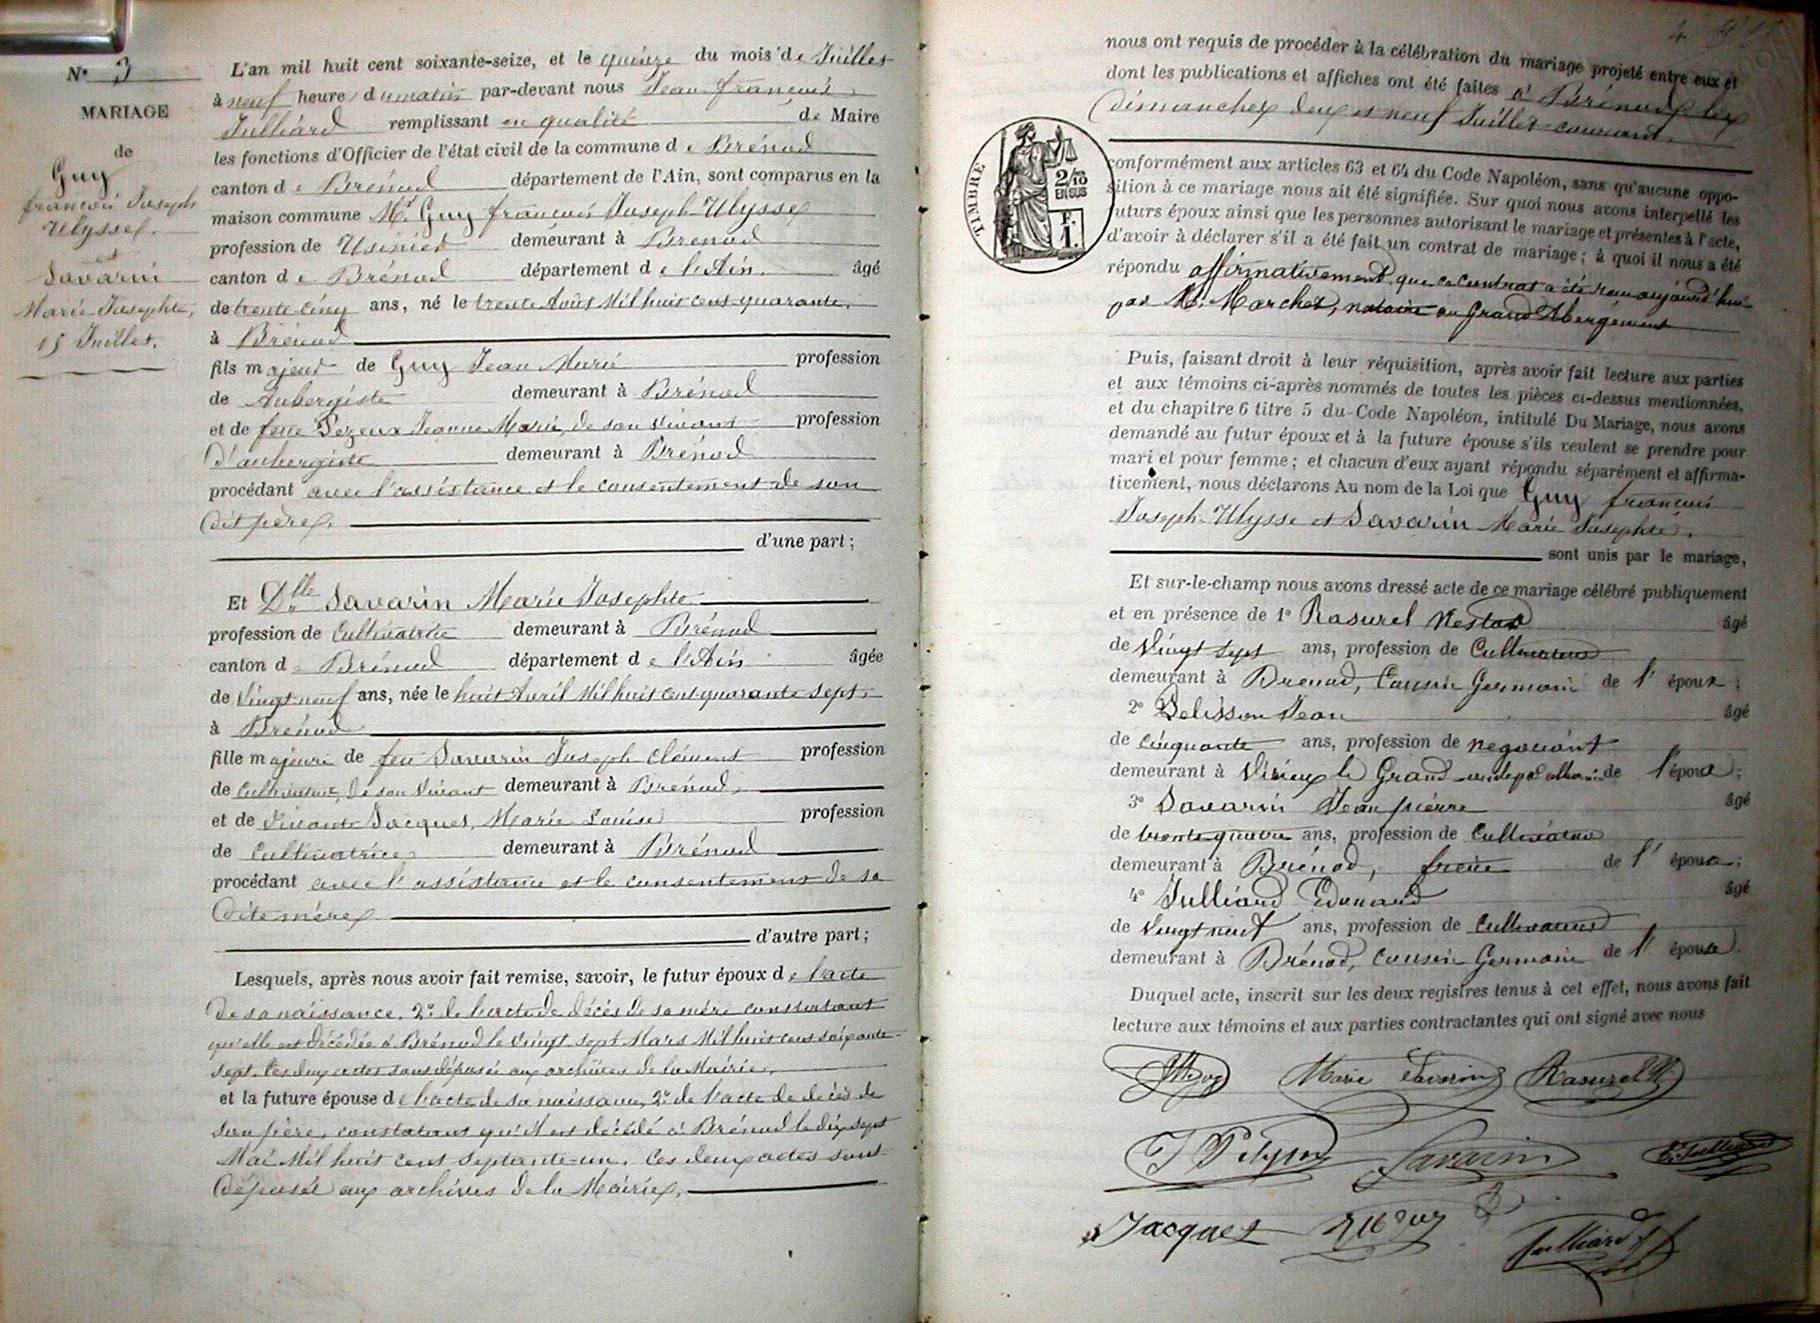 N° 3
MARIAGE
de
Guy
françois Joseph
Ulysse.
et
Savarin
Marie Josephte,
15 Juillet.
L'an mil huit cent soixante-seize, et le quinze du mois de Juillet
à neuf heures du matin par-devant nous Jean françois
Julliard remplissant en qualité de Maire
les fonctions d'Officier de l'état civil de la commune de Brénod
canton de Brénod département de l'Ain, sont comparus en la
maison commune Mr Guy françois Joseph Ulysse
profession de Usinier demeurant à Brenod
canton de Brénod département de l'Ain. âgé
de trente cinq ans, né le trente Août Mil huit cent quarante.
à Brénod
fils majeur de Guy Jean Marie profession
de Aubergiste demeurant à Brénod
et de feue Jeanne Marie, de son vivant profession
d'aubergiste demeurant à Brénod
procédant avec l'assistance et le consentement de son
dit père.
d'une part;
Et Dlle Savarin Marie Josephte
profession de Cultivatrice demeurant à Brénod
canton de Brénod département de l'Ain âgée
de vingt neuf ans, née le huit Avril Mil huit cent quarante sept.
à Brénod
fille majeure de feu Savarin Joseph Clément profession
de cultivateur, de son vivant demeurant à Brénod,
et de vivante Jacquet, Marie Louise profession
de Cultivatrice demeurant à Brénod
procédant avec l'assistance et le consentement de sa
dite mère
d'autre part;
Lesquels, après nous avoir fait remise, savoir, le futur époux de l'acte
de sa naissance, 2° de l'acte de décès de sa mère constatant
qu'elle est décédée à Brénod le vingt sept Mars Mil huit cent soixante
sept. Ces deux actes sont déposés aux archives de la Mairie,
et la future épouse de l'acte de sa naissance, 2° de l'acte de décès de
son père, constatant qu'il est décédé à Brénod le dix sept
Mai Mil huit cent septante-un. Ces deux actes sont
déposés aux archives de la Mairie.
nous ont requis de procéder à la célébration du mariage projeté entre eux et
dont les publications et affiches ont été faites à Brénod les
dimanches deux et neuf Juillet courant.
TIMBRE
2/10
EN SUS
F.
1.
conformément aux articles 63 et 64 du Code Napoléon, sans qu'aucune oppo-
sition à ce mariage nous ait été signifiée. Sur quoi nous avons interpellé les
futurs époux ainsi que les personnes autorisant le mariage et présentes à l'acte,
d'avoir à déclarer s'il a été fait un contrat de mariage; à quoi il nous a été
répondu affirmativement, que ce contrat a été reçu aujourd'hui
par Me Marchet, notaire au Grand Abergement
Puis, faisant droit à leur réquisition, après avoir fait lecture aux parties
et aux témoins ci-après nommés de toutes les pièces ci-dessus mentionnées,
et du chapitre 6 titre 5 du Code Napoléon, intitulé Du Mariage, nous avons
demandé au futur époux et à la future épouse s'ils veulent se prendre pour
mari et pour femme; et chacun d'eux ayant répondu séparément et affirma-
tivement, nous déclarons Au nom de la Loi que Guy françois
Joseph Ulysse et Savarin Marie Josephte.
sont unis par le mariage,
Et sur-le-champ nous avons dressé acte de ce mariage célébré publiquement
et en présence de 1° Rasurel Nestor âgé
de vingt sept ans, profession de Cultivateur
demeurant à Brenod, Cousin Germain de l'époux;
2° Pelisson Jean âgé
de cinquante ans, profession de negociant
demeurant à Virieu le Grand de l'époux;
3° Savarin Jean pierre âgé
de trente quatre ans, profession de Cultivateur
demeurant à Brénod, frère de l'épouse;
4° Julliard Edouard âgé
de Vingt neuf ans, profession de Cultivateur
demeurant à Brénod, cousin Germain de l'épouse.
Duquel acte, inscrit sur les deux registres tenus à cet effet, nous avons fait
lecture aux témoins et aux parties contractantes qui ont signé avec nous
Marie Savarin Rasurel N
Savarin
Jacquet
Julliard